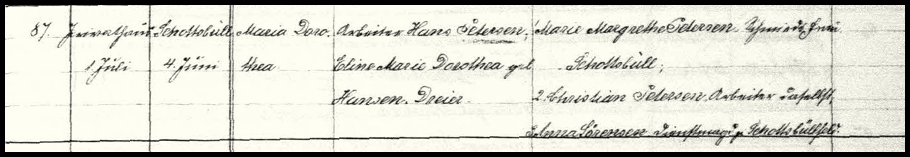 87. Privathaus Schottsbüll Maria Doro- Arbeiter Hans Petersen, 1 Marie Margrethe Petersen Schmieds Frau
1 Juli 4. Juni thea Eline Marie Dorothea geb Schottsbüll;
Hansen-Dreier. 2. Christian Petersen, Arbeiter daselbst,
3. Anna Sörensen Dienstmagd Schottsbüllfeld.